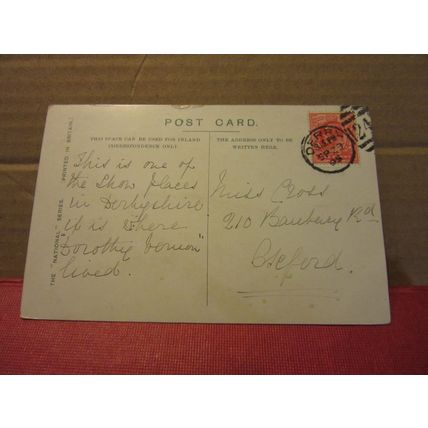 POST CARD.
THIS SPACE CAN BE USED FOR INLAND
CORRESPONDENCE ONLY.
THE ADDRESS ONLY TO BE
WRITTEN HERE.
This is one of
the Show places
in Derbyshire
it is where
"Dorothy Vernon"
lived.
Miss Cross
210 Banbury Rd
Oxford.
THE "NATIONAL" SERIES.
PRINTED IN BRITAIN.
DERBY